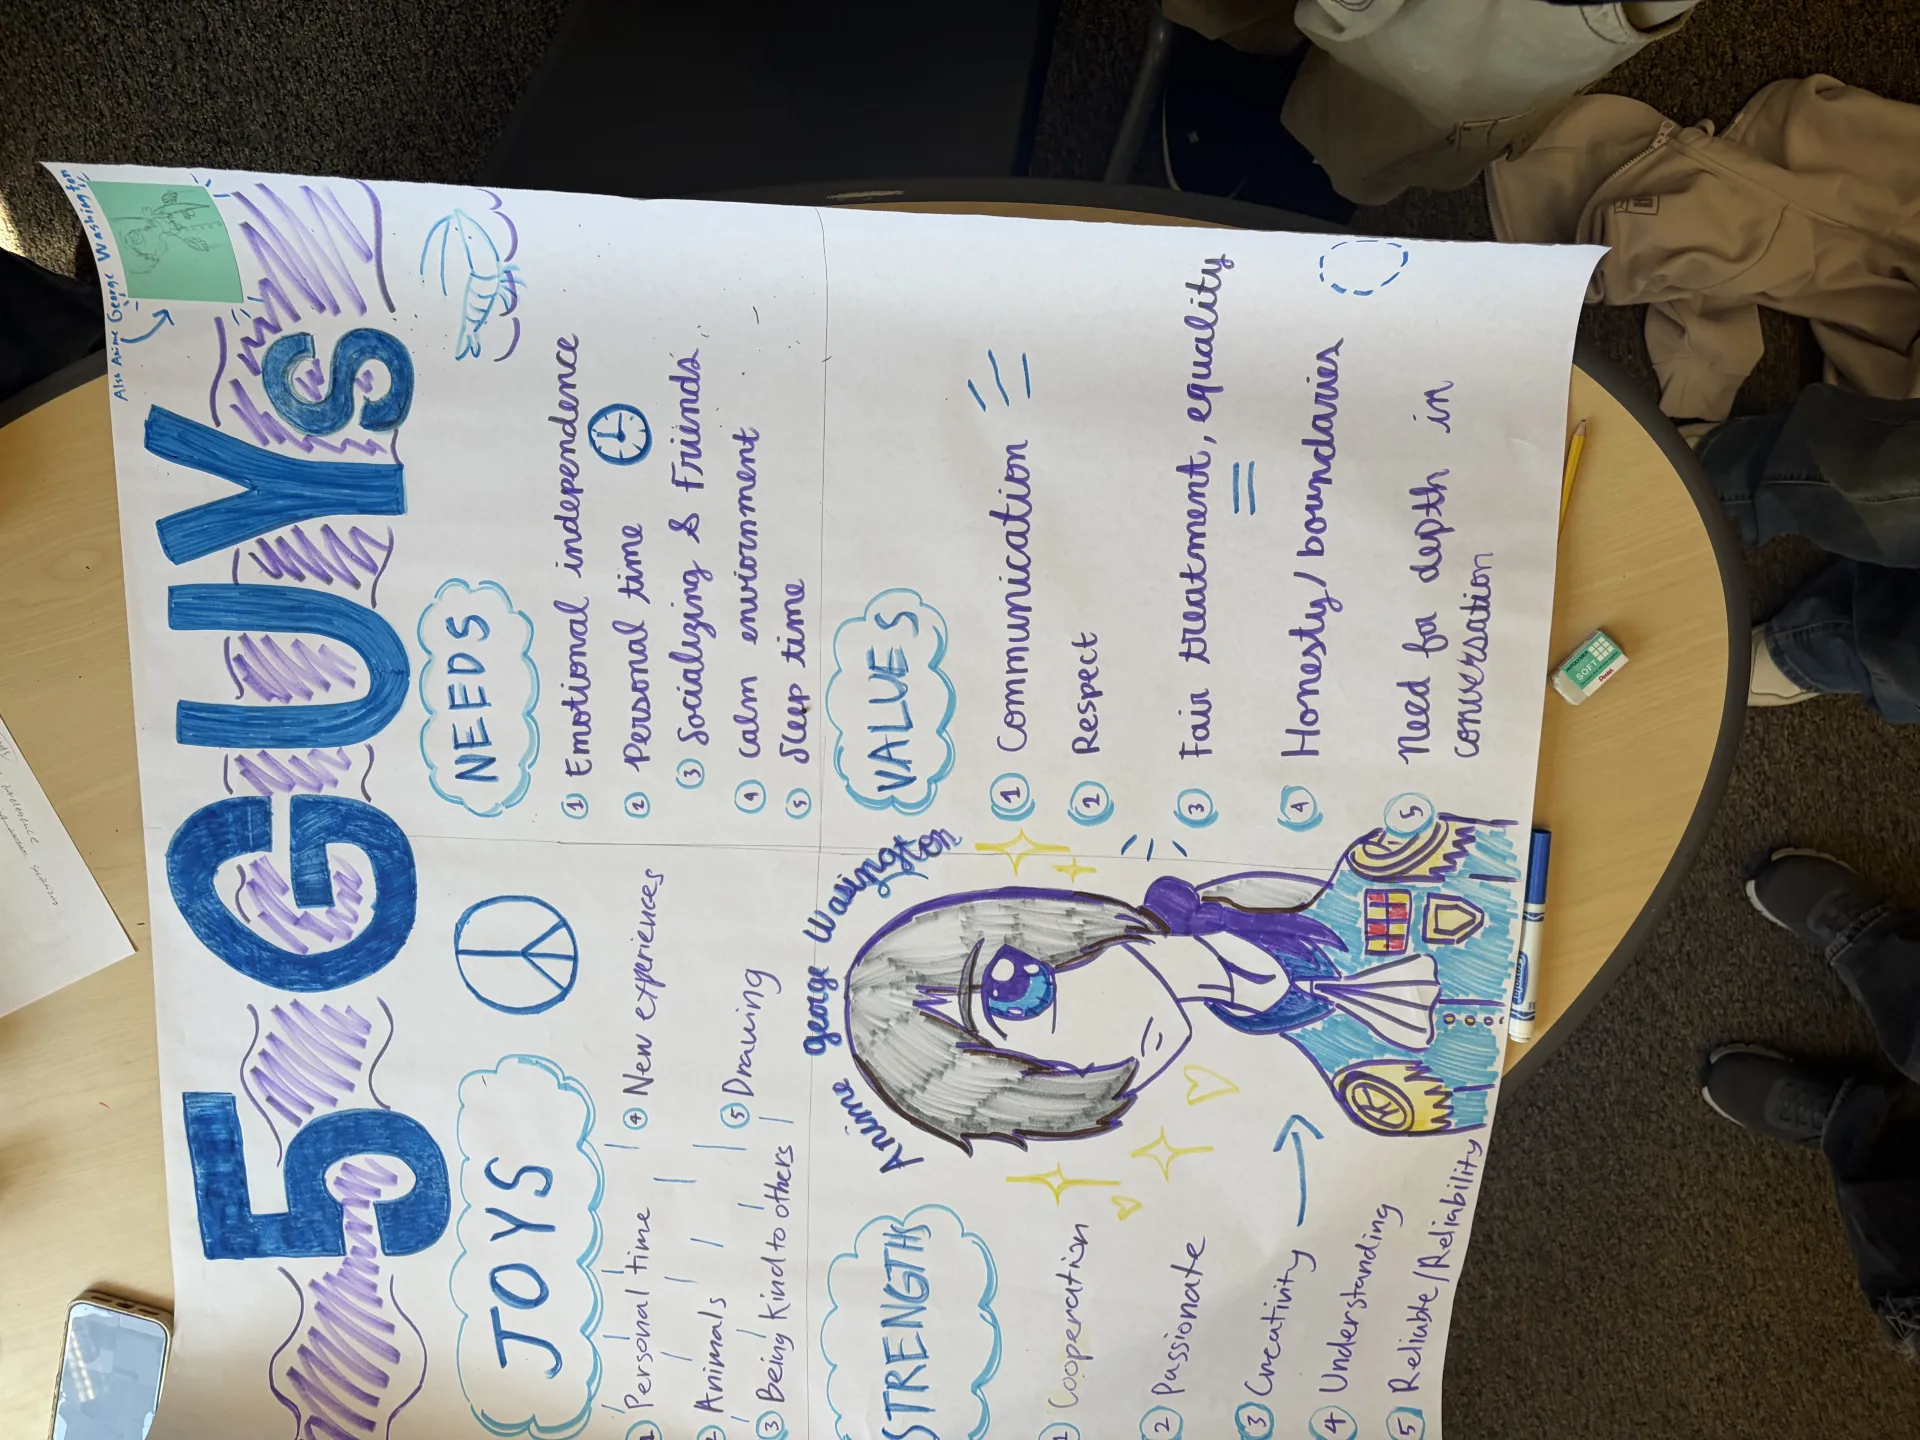 5 GUYS
Also Anime George Washington
JOYS
1 Personal time
2 Animals
3 Being kind to others
4 New experiences
5 Drawing
NEEDS
1 Emotional independence
2 Personal time
3 Socializing & Friends
4 calm enviornment
5 sleep time
STRENGTHS
1 Cooperation
2 Passionate
3 Creativity
4 Understanding
5 Reliable/Reliability
Anime George Wasington
VALUES
1 Communication
2 Respect
3 Fair treatment, equality
4 Honesty/boundaries
5 Need for depth in
conversation
SOFT
Pentel
Crayola